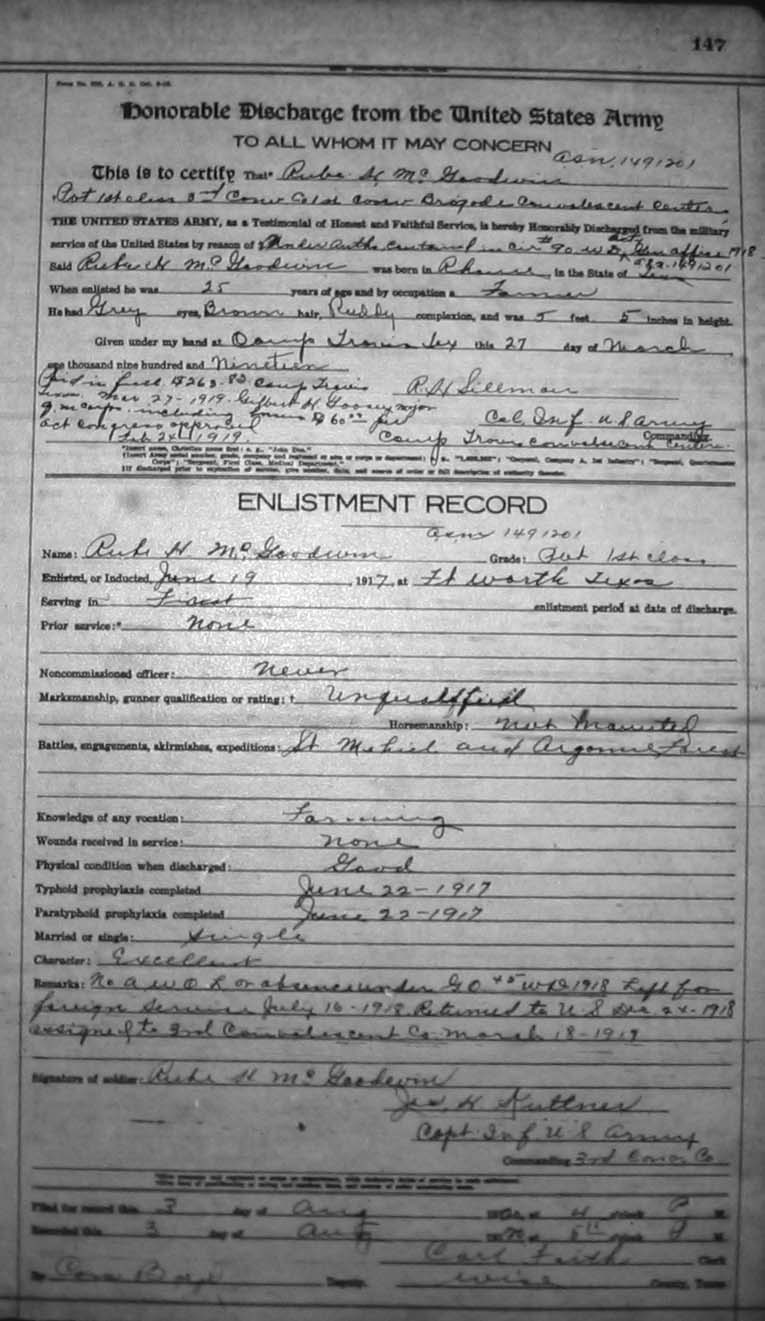 147
Honorable Discharge from the United States Army
TO ALL WHOM IT MAY CONCERN
asn. 1491201
This is to certify That* Rube H Mc Goodwin
Pvt 1st class 3rd Conv Brigade Convalescent Center
THE UNITED STATES ARMY, as a Testimonial of Honest and Faithful Service, is hereby Honorably Discharged from the military
service of the United States by reason of Under Autho contained in Cir # 90 W D 1918
Said Rube H Mc Goodwin was born in Rhome, in the State of Texas
When enlisted he was 25 years of age and by occupation a Farmer
He had Grey eyes, Brown hair, Ruddy complexion, and was 5 feet 5 inches in height.
Given under my hand at Camp Travis Tex this 27 day of March,
one thousand nine hundred and Nineteen
Paid in full $263.82 Camp Travis
R H Sillman
Texas. Mar 27-1919. Gilbert H Major
Q M Corps. including bonus $60.00 per
Col. Inf. U S Army
act congress approved
Commanding.
Feb 24 1919.
Camp Travis Convalescent Center.
ENLISTMENT RECORD
asn 1491201
Name: Rube H Mc Goodwin Grade: Pvt 1st class
Enlisted, or Inducted, June 19, 1917, at Ft Worth Texas
Serving in First enlistment period at date of discharge.
Prior service:* None
Noncommissioned officer: Never
Marksmanship, gunner qualification or rating: † Unqualified
Horsemanship: Not Mounted
Battles, engagements, skirmishes, expeditions: St Mihiel and Argonne Forest
Knowledge of any vocation: Farming
Wounds received in service: none
Physical condition when discharged: Good
Typhoid prophylaxis completed June 22-1917
Paratyphoid prophylaxis completed June 22-1917
Married or single: Single
Character: Excellent
Remarks: No A W O L or absence under G O 45 W D 1918 Left for
foreign service July 16-1918 Returned to U S Dec 24-1918
assigned to 3rd Convalescent Co. March 18-1919
Signature of soldier: Rube H Mc Goodwin
Jos. H Kuttner
Capt Inf U S Army
Commanding 3rd Conv Co
Filed for record this 3 day of Aug at 4 o'clock P M.
Recorded this 3 day of Aug at 5 o'clock P M.
Carl Faith Clerk
By Deputy. Wise County, Texas